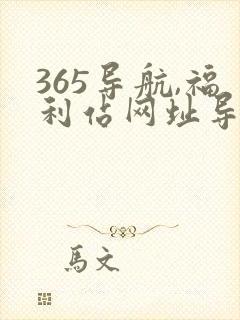 365导航,福
利佔网址导
馬文